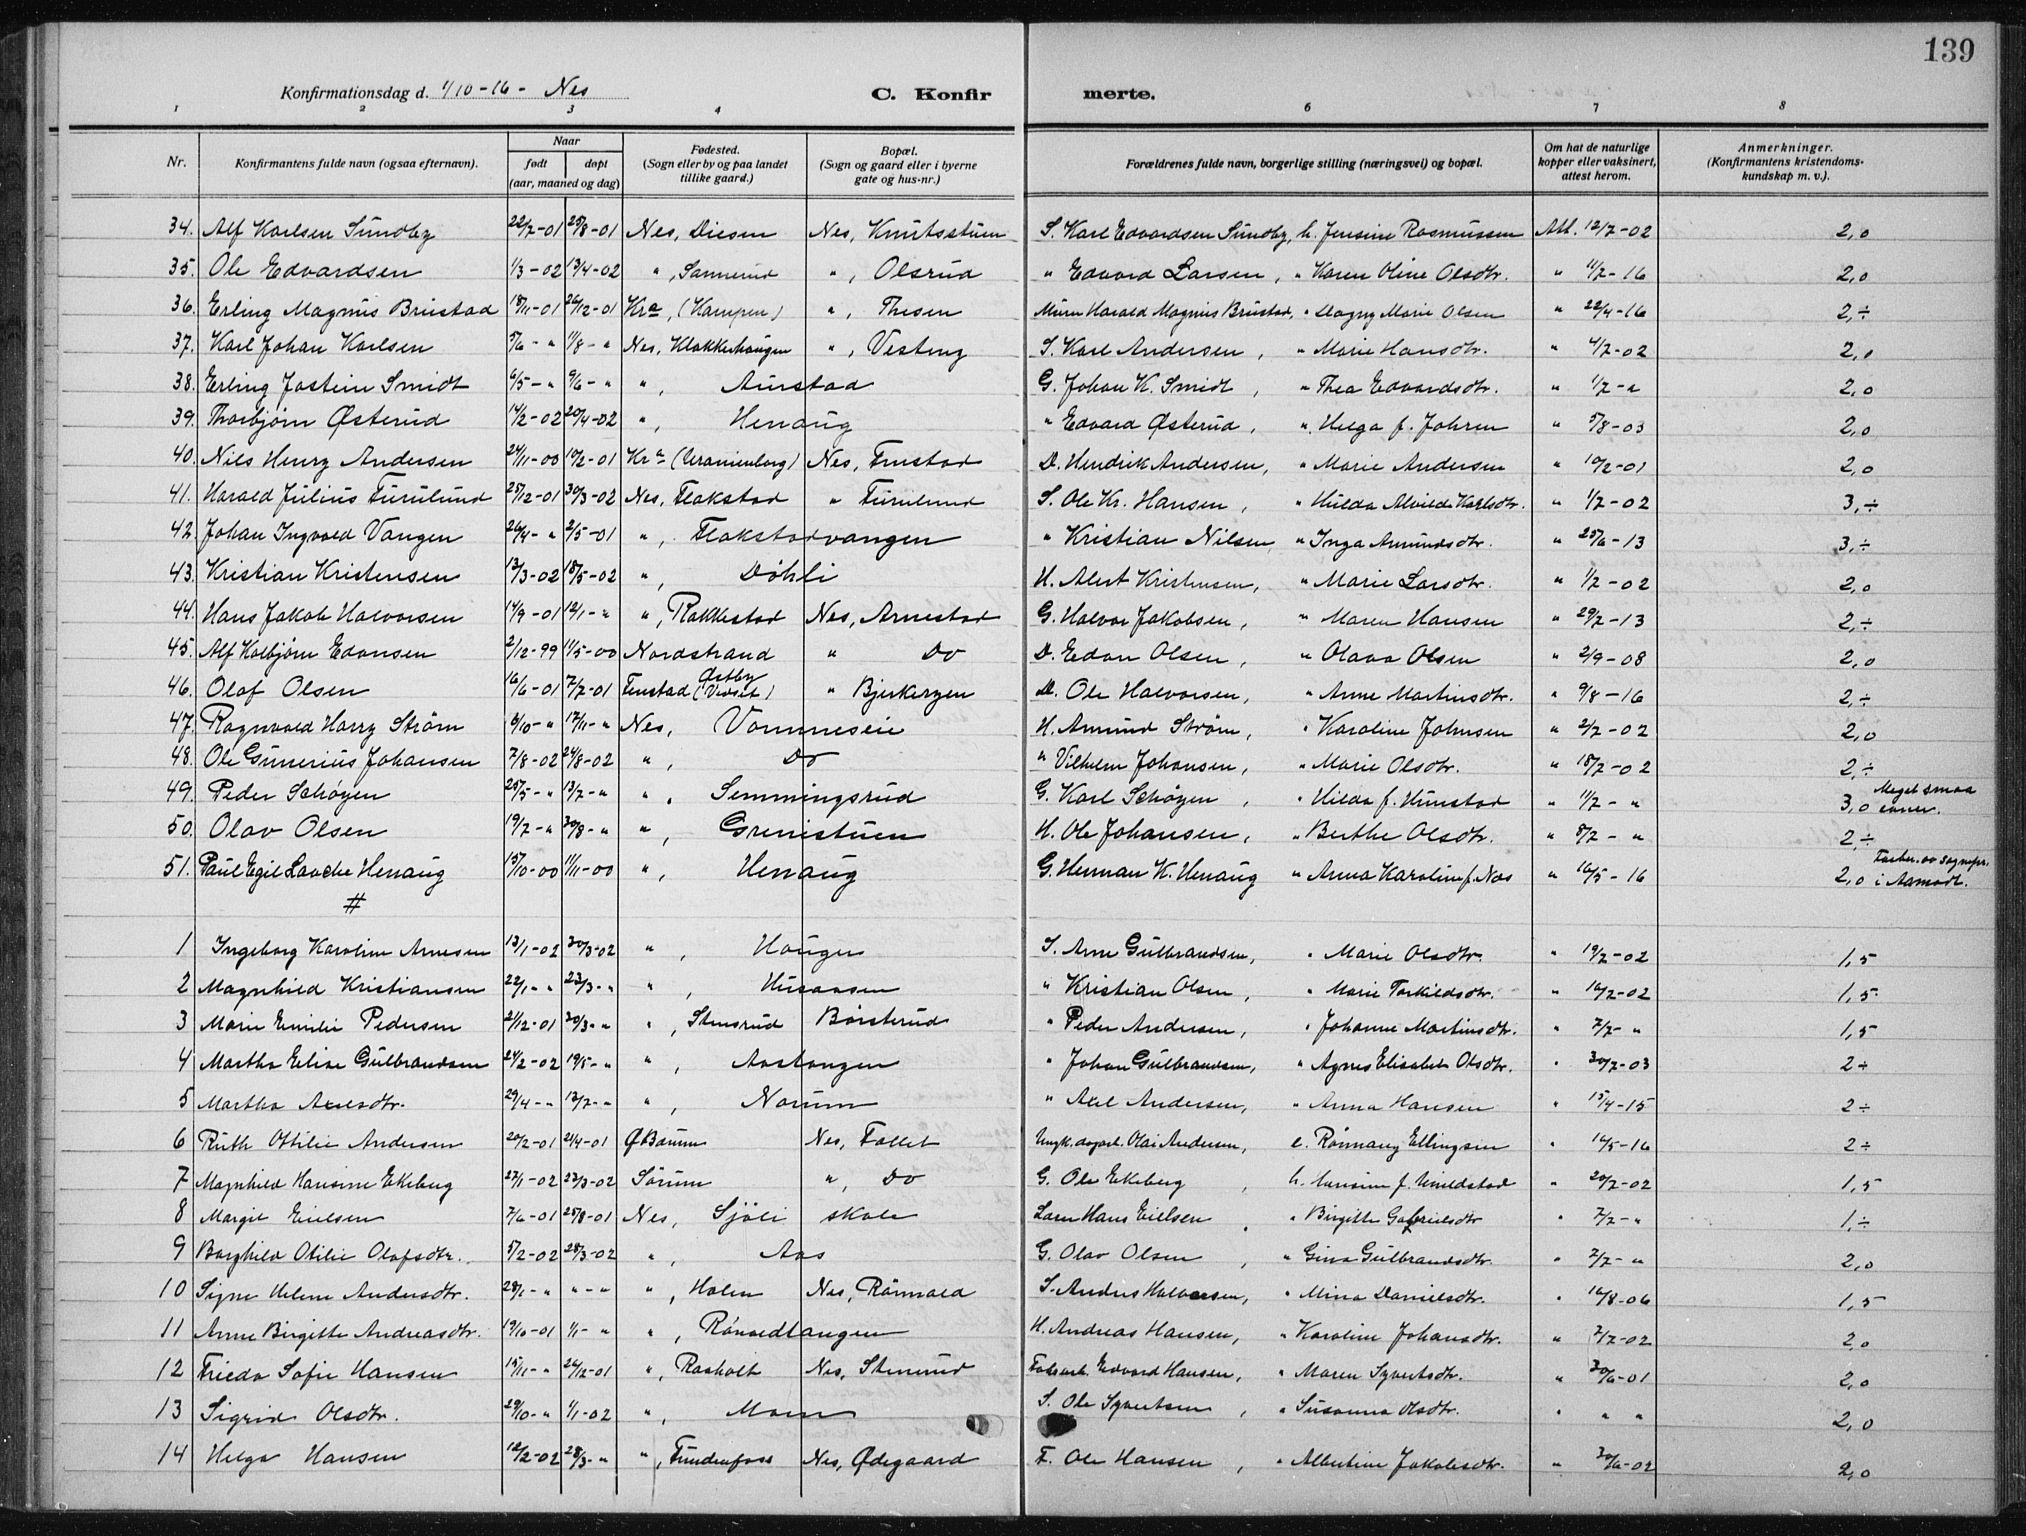 139
Konfirmationsdag d. 1/10-16- Nes
C. Konfirmerte.
1 2 3 4 6 7 8
Nr. Konfirmantens fulde navn (ogsaa efternavn). Naar født døpt (aar, maaned og dag) Fødested. (Sogn eller by og paa landet tillike gaard.) Bopæl. (Sogn og gaard eller i byerne gate og hus-nr.) Forældrenes fulde navn, borgerlige stilling (næringsvei) og bopæl. Om hat de naturlige kopper eller vaksinert, attest herom. Anmerkninger. (Konfirmantens kristendomskundskap m. v.).
34. Alf Karlsen Sundby 22/7-01 25/8-01 Nes, Diesen Nes, Knutsstuen S. Karl Edvardsen Sundby, h. Jensine Rasmussen Att. 12/7-02 2,0
35. Ole Edvardsen 1/3-02 13/4-02 ", Sannerud ", Olsrud " Edvard Larsen, " Karen Oline Olsdtr. " 11/7-16 2,0
36. Erling Magnus Brustad 18/11-01 26/12-01 Kra, (Kampen) ", Thesen Murer Harald Magnus Brustad, " Dagny Marie Olsen " 22/4-16 2,÷
37. Karl Johan Karlsen 5/6-" 11/8-" Nes, Klokkerhaugen ", Vestvang S. Karl Andersen, " Marie Hansdtr. " 4/7-02 2,0
38. Erling Jostein Smidt 6/5-" 9/6-" ", Aurstad G. Johan K. Smidt, " Thea Edvardsdtr. " 1/7-" 2,0
39. Thorbjørn Østerud 14/2-02 20/4-02 ", Henaug " Edvard Østerud, " Helga f. Johren " 5/8-03 2,0
40. Nils Henry Andersen 24/11-00 10/2-01 Kra (Uranienborg) Nes, Fenstad D. Hendrik Andersen, " Marie Andersen " 10/2-01 2,0
41. Harald Julius Furulund 25/12-01 30/3-02 Nes, Flakstad " Furulund S. Ole Kr. Hansen, " Hulda Alvilde Karlsdtr. " 1/7-02 3,÷
42. Johan Ingvald Vangen 26/4-" 2/5-01 ", Flakstadvangen " Kristian Nilsen " Inga Amundsdtr. " 25/6-13 3,÷
43. Kristian Kristensen 13/3-02 18/5-02 ", Döhli H. Albert Kristensen, " Marie Larsdtr. " 1/7-02 2,0
44. Hans Jakob Halvorsen 14/9-01 12/1-" ", Rakkestad Nes, Arnestad G. Halvor Jakobsen, " Maren Hansen " 29/7-13 2,÷
45. Alf Kolbjørn Edonsen 2/12-99 11/5-00 Nordstrand " Do D. Edon Olsen, " Olava Olsen " 2/9-08 2,0
46. Olaf Olsen 16/6-01 7/7-01 Fenstad (Østby Veoset) " Bjerkeryen D. Ole Halvorsen, " Anne Martinsdtr. " 9/8-16 2,÷
47. Ragnvald Harry Strøm 6/10-" 17/11-" Nes, Vormneseie H. Amund Strøm, " Karoline Johnsen " 2/7-02 2,0
48. Ole Gunerius Johansen 7/8-02 24/8-02 ", Do " Vilhelm Johansen, " Marie Olsdtr. " 18/7-02 2,÷
49. Peder Schøyen 25/5-" 13/7-" ", Semmingsrud G. Karl Schøyen, " Hilda f. Hunstad " 11/7-" 3,0 Meget smaa evner.
50. Olav Olsen 19/7-" 30/8-" ", Grenistuen H. Ole Johansen, " Berthe Olsdtr. " 8/7-" 2,÷
51. Paul Egil Laache Henaug 15/10-00 11/11-00 ", Henaug G. Herman K. Henaug " Anna Karoline f. Nes " 16/5-16 2,0 Forber. av sognepr. i Aamodt.
#
1 Ingeborg Karoline Arnesen 13/1-02 30/3-02 ", Haugen S. Arne Gulbrandsen, " Marie Olsdtr. " 19/7-02 1,5
2 Magnhild Kristiansen 22/1-" 23/3-" ", Husaasen " Kristian Olsen, " Marie Torkildsdtr. " 16/7-02 1,5
3 Marie Emilie Pedersen 21/12-01 30/3-" ", Stensrud Börsterud " Peder Andersen, " Johanne Martinsdtr. " 7/7-" 1,5
4 Martha Elise Gulbrandsen 24/2-02 19/5-" ", Aastangen " Johan Gulbrandsen, " Agnes Elisabet Olsdtr. " 30/7-03 2÷
5 Martha Axelsdtr. 29/4-" 13/7-" ", Norum " Axel Andersen, " Anna Hansen " 15/4-15 2÷
6 Ruth Ottilie Andersen 20/2-01 21/4-01 ØBærum Nes, Follet Ungk. dagarb. Olai Andersen, e. Rønnaug Ellingsen " 16/5-16 2÷
7 Magnhild Hansine Ekeberg 27/1-02 23/3-02 Sørum ", Do G. Ole Ekeberg, h. Hansine f. Huseldstad " 20/7-02 1,5
8 Margit Eielsen 7/6-01 25/8-01 Nes, Sjöli skole Lærer Hans Eielsen, " Birgitte Gabrielsdtr " 7/7-" 1,÷
9 Borghild Otilie Olafsdtr. 5/2-02 28/3-02 ", Aas G. Olav Olsen, " Gina Gulbrandsdtr. " 7/7-" 2,0
10 Signe Helene Andersdtr. 28/1-" "-" ", Holen Nes, Rönvold S. Anders Halvorsen, " Mina Danielsdtr. " 16/8-06 1,5
11 Anne Birgitte Andreasdtr. 19/10-01 1/1-" ", Rönvoldtangen H. Andreas Hansen, " Karoline Johansdtr. " 7/7-02 2,0
12 Frieda Sofie Hansen 15/11-" 26/12-01 ", Raaholt Nes, Stenrud Fabarb. Edvard Hansen, " Maren Syvertsdtr. " 30/6-01 2,0
13 Sigrid Olsdtr. 29/10-" 1/1-02 ", Moen S. Ole Syvertsen, " Susanna Olsdtr. " " " 2,0
14 Helga Hansen 12/2-02 28/3-" ", Fundenfoss Nes, Ødegaard F. Ole Hansen, " Albertine Jakobsdtr. " 30/6-02 2,0